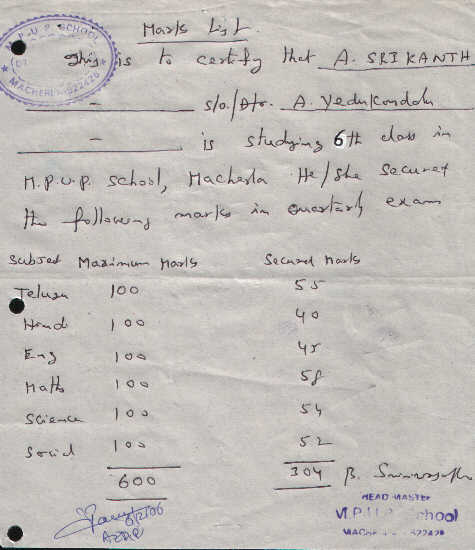 M.P.U.P. SCHOOL
MACHERLA-522426
Marks List
This is to certify that A. SRIKANTH
- S/o./D/o. A. Yedukondalu
- is studying 6th class in
M.P.U.P. School, Macherla He/She secured
the following marks in quarterly exam
Subject Maximum Marks Secured Marks
Telugu 100 55
Hindi 100 40
Eng 100 45
Maths 100 58
Science 100 54
Social 100 52
600 304 B.
HEAD MASTER
M.P.U.P. School
MACHERLA - 522426